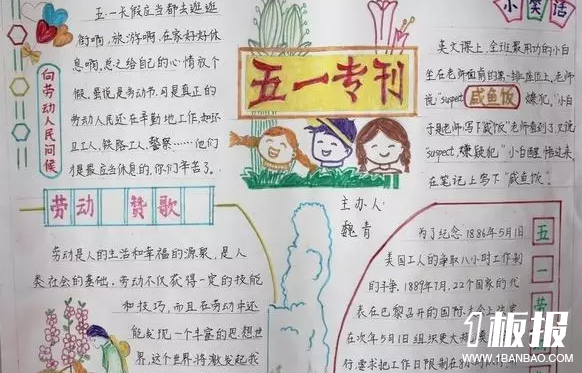 五·一长假应当都去逛逛
街啊,旅游啊,在家好好休
息啊,总之给自己的心情放个
假,虽说是劳动节,可是真正的
劳动人民还在辛勤地工作,如环
卫工人,铁路工人,警察……他们
才是最应当休息的,你们辛苦了。
向劳动人民问候
五一专刊
主办人:
魏青
小笑话
英文课上,全班最用功的小白
坐在老师面前的第一排座位上,老师
说“suspect 嫌犯,”小白
于是在
咸鱼饭
说
“suspect,嫌疑犯”小白醒悟过来
在笔记上写下“咸鱼饭”。
劳动赞歌
劳动是人的生活和幸福的源泉,是人
类社会的基础,劳动不仅获得一定的技能
和技巧,而且在劳动中还
能发现一个丰富的思想世
界,这个世界将激发起我
五一劳
为了纪念1886年5月1日
美国工人的争取八小时工作制
的斗争,1889年7月,22个国家的代
表在巴黎召开的国际
在次年5月1日组织更大
行,要求把工作日限制在8小时以
1板报
WWW.1BANBAO.COM